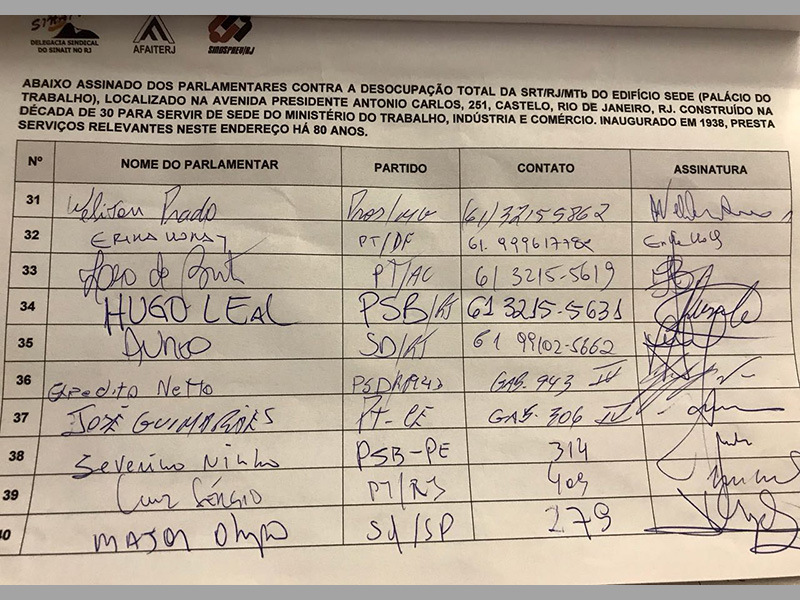 DELEGACIA SINDICAL
DO SINAIT NO RJ
AFAITERJ
ABAIXO ASSINADO DOS PARLAMENTARES CONTRA A DESOCUPAÇÃO TOTAL DA SRT/RJ/MTb DO EDIFÍCIO SEDE (PALÁCIO DO
TRABALHO), LOCALIZADO NA AVENIDA PRESIDENTE ANTONIO CARLOS, 251, CASTELO, RIO DE JANEIRO, RJ. CONSTRUÍDO NA
DÉCADA DE 30 PARA SERVIR DE SEDE DO MINISTÉRIO DO TRABALHO, INDÚSTRIA E COMÉRCIO. INAUGURADO EM 1938, PRESTA
SERVIÇOS RELEVANTES NESTE ENDEREÇO HÁ 80 ANOS.
Nº NOME DO PARLAMENTAR PARTIDO CONTATO ASSINATURA
31 Weliton Prado Pros/MG (61) 32155862
32 ERIKA KOKAY PT/DF 61. 999617782 Erika Kokay
33 PT/AC 61 3215-5619
34 HUGO LEAL PSB/RJ 61 3215-5631
35 AUREO SD/RJ 61 99102-5662
36 Expedito Netto GAB. 943 IV
37 JOSÉ GUIMARÃES PT-CE GAB. 306 IV
38 Severino Ninho PSB-PE 314
39 Luiz SÉRGIO PT/RJ 409
40 MAJOR Olympio Sd/SP 279